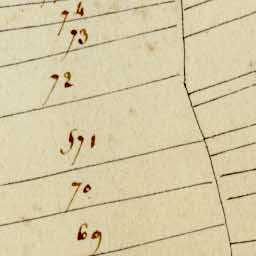 74
73
72
571
70
69